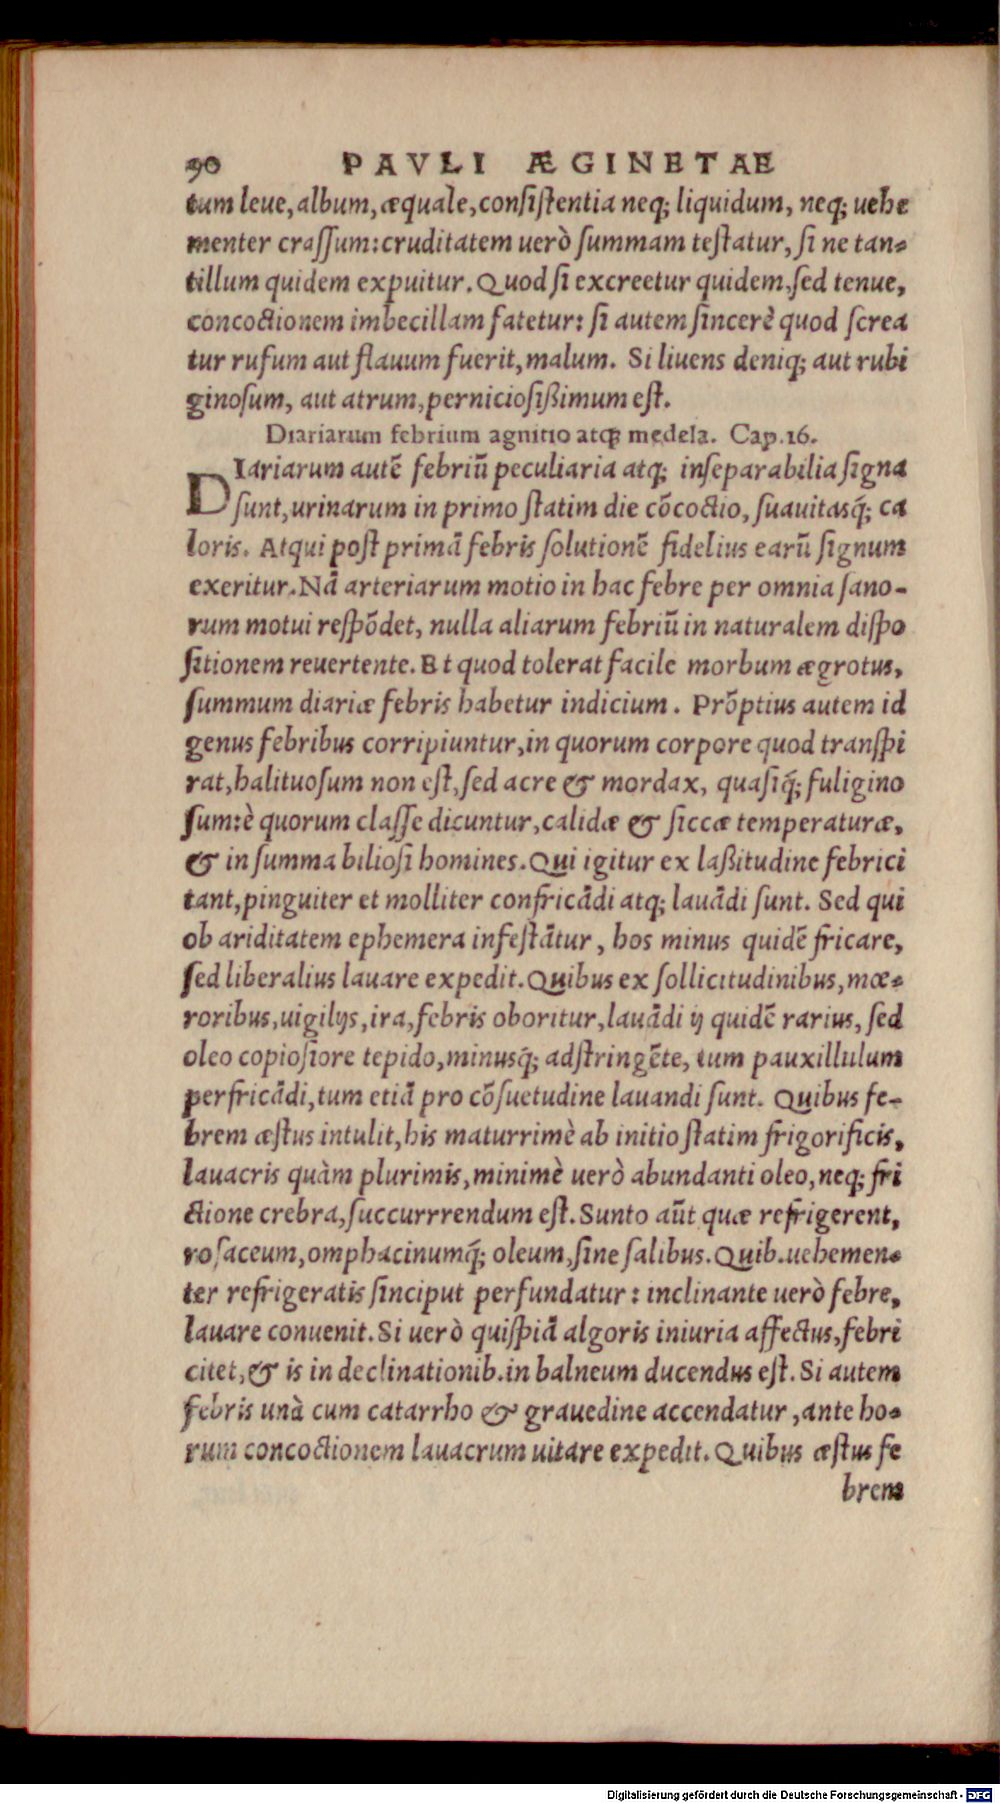 90 PAVLI ÆGINETAE
tum leue, album, æquale, consistentia neq; liquidum, neq; uehe
menter crassum: cruditatem uerò summam testatur, si ne tan-
tillum quidem expuitur. Quod si excreetur quidem, sed tenue,
concoctionem imbecillam fatetur: si autem sincerè quod screa
tur rufum aut flauum fuerit, malum. Si liuens deniq; aut rubi
ginosum, aut atrum, perniciosißimum est.
Diariarum febrium agnitio atq; medela. Cap. 16.
DIariarum autē febriū peculiaria atq; inseparabilia signa
sunt, urinarum in primo statim die cōcoctio, suauitasq́; ca
loris. Atqui post primā febris solutionē fidelius earū signum
exeritur. Nā arteriarum motio in hac febre per omnia sano-
rum motui respōdet, nulla aliarum febriū in naturalem dispo
sitionem reuertente. Et quod tolerat facile morbum ægrotus,
summum diariæ febris habetur indicium. Prōptius autem id
genus febribus corripiuntur, in quorum corpore quod transpi
rat, halituosum non est, sed acre & mordax, quasiq́; fuligino
sum: è quorum classe dicuntur, calidæ & siccæ temperaturæ,
& in summa biliosi homines. Qui igitur ex laßitudine febrici
tant, pinguiter et molliter confricādi atq; lauādi sunt. Sed qui
ob ariditatem ephemera infestātur, hos minus quidē fricare,
sed liberalius lauare expedit. Quibus ex sollicitudinibus, mœ-
roribus, uigilijs, ira, febris oboritur, lauādi ij quidē rarius, sed
oleo copiosiore tepido, minusq́; adstringēte, tum pauxillulum
perfricādi, tum etiā pro cōsuetudine lauandi sunt. Quibus fe-
brem æstus intulit, his maturrimè ab initio statim frigorificis,
lauacris quàm plurimis, minimè uerò abundanti oleo, neq; fri
ctione crebra, succurrrendum est. Sunto aūt quæ refrigerent,
rosaceum, omphacinumq́; oleum, sine salibus. Quib. uehemen-
ter refrigeratis sinciput perfundatur: inclinante uerò febre,
lauare conuenit. Si uerò quispiā algoris iniuria affectus, febri
citet, & is in declinationib. in balneum ducendus est. Si autem
febris unà cum catarrho & grauedine accendatur, ante ho-
rum concoctionem lauacrum uitare expedit. Quibus æstus fe
brem
Digitalisierung gefördert durch die Deutsche Forschungsgemeinschaft - DFG